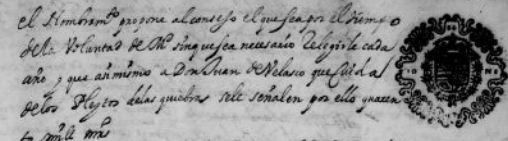 el Nombram.to propone al consejo el que sea por el tiempo
de la Voluntad de M.d sin que sea necesario Relegirle cada
año y que asi mismo a Don Juan de Velasco que Cuida
de los Pleytos de las quiebras se le señalen por ello quaren
ta mill mrs